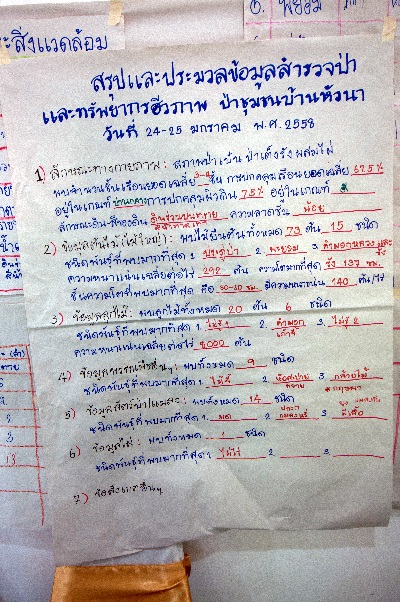 ะสิ่งแวดล้อม
สรุปและประมวลข้อมูลสำรวจป่า
และทรัพยากรชีวภาพ ป่าชุมชนบ้านหัวนา
วันที่ 24-25 มกราคม พ.ศ. 2558
1) ลักษณะทางกายภาพ: สภาพป่าเป็น ป่าเต็งรังผสมไผ่
พบจำนวนชั้นเรือนยอดเฉลี่ย 3-4 ชั้น การปกคลุมเรือนยอดเฉลี่ย 67.5%
อยู่ในเกณฑ์ ปานกลาง การปกคลุมผิวดิน 75% อยู่ในเกณฑ์ ดี
ลักษณะดิน-สีของดิน ดินร่วนปนทราย ความลาดชัน น้อย
2) ข้อมูลต้นไม้ (ไม้ใหญ่): พบไม้ยืนต้นทั้งหมด 73 ต้น 15 ชนิด
ชนิดพันธุ์ที่พบมากที่สุด 1. 2. พะยอม 3.
ความหนาแน่นเฉลี่ยต่อไร่ 292 ต้น ความโตมากที่สุด รัง 137 ซม.
ชั้นความโตที่พบมากที่สุด คือ 30-60 ซม. มีความหนาแน่น 140 ต้น/ไร่
3) ข้อมูลลูกไม้: พบลูกไม้ทั้งหมด 20 ต้น 6 ชนิด
ชนิดพันธุ์ที่พบมากที่สุด 1. ไม้รู้ 1 2. 3. ไม้รู้ 2
ความหนาแน่นเฉลี่ยต่อไร่ 8,000 ต้น
4) ข้อมูลพรรณพืชอื่นๆ: พบทั้งหมด 9 ชนิด
ชนิดพันธุ์ที่พบมากที่สุด 1. 2. 3. กล้วยไม้
5) ข้อมูลสัตว์ป่าแมลง: พบทั้งหมด 14 ชนิด
ชนิดพันธุ์ที่พบมากที่สุด 1. มด 2. 3. ผีเสื้อ
6) ข้อมูลไผ่: พบทั้งหมด ชนิด
ชนิดพันธุ์ที่พบมากที่สุด 1. ไผ่ไร่ 2. 3.
7) ข้อสังเกตอื่นๆ